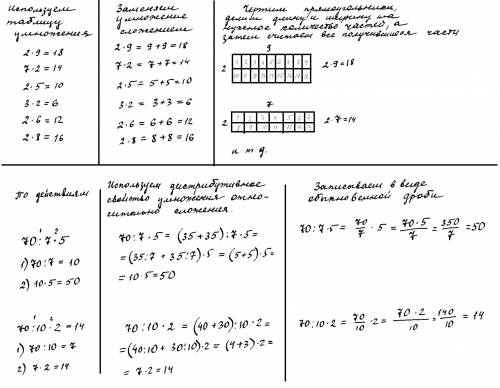 Используем
таблицу
умножения
2·9 = 18
7·2 = 14
2·5 = 10
3·2 = 6
2·6 = 12
2·8 = 16
Заменяем
умножение
сложением
2·9 = 9+9 = 18
7·2 = 7+7 = 14
2·5 = 5+5 = 10
3·2 = 3+3 = 6
2·6 = 6+6 = 12
2·8 = 8+8 = 16
Чертим прямоугольник,
делим длину и ширину на
нужное количество частей, а
затем считаем все получившиеся части
9
2
1 2 3 4 5 6 7 8 9
10 11 12 13 14 15 16 17 18
2·9=18
7
2
1 2 3 4 5 6 7
8 9 10 11 12 13 14
2·7=14
и т.д.
По действиям
1 2
70:7·5
1) 70:7 = 10
2) 10·5 = 50
1 2
70:10·2 = 14
1) 70:10 = 7
2) 7·2 = 14
Используем дистрибутивное
свойство умножения отно-
сительно сложения.
70:7·5 = (35+35):7·5 =
= (35:7 + 35:7)·5 = (5+5)·5 =
= 10·5 = 50
70:10·2 = (40+30):10·2 =
= (40:10 + 30:10)·2 = (4+3)·2 =
= 7·2 = 14
Записываем в виде
обыкновенной дроби
70:7·5 = 70/7 · 5 = 70·5/7 = 350/7 = 50
70:10·2 = 70/10 · 2 = 70·2/10 = 140/10 = 14